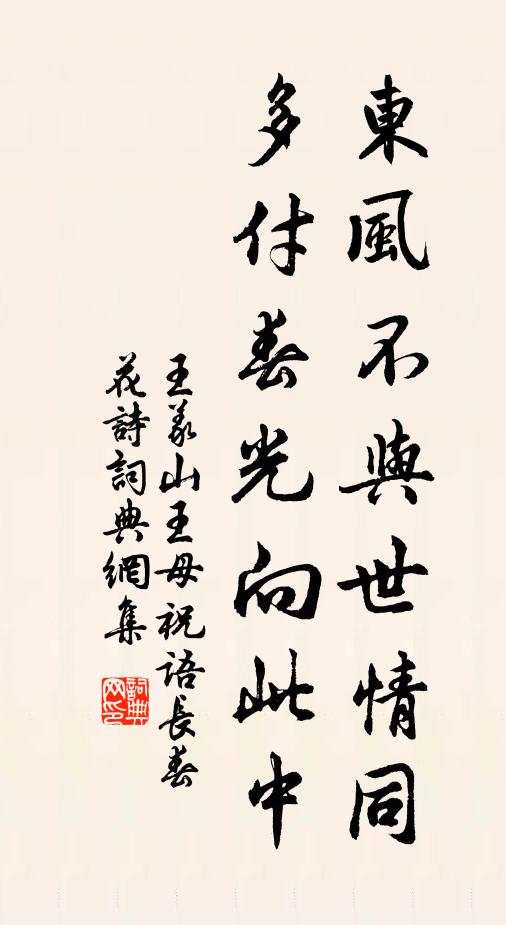 東風不與世情同
多付春光向此中
王義山王母祝語長春
花詩詞典網集
詞典
网印